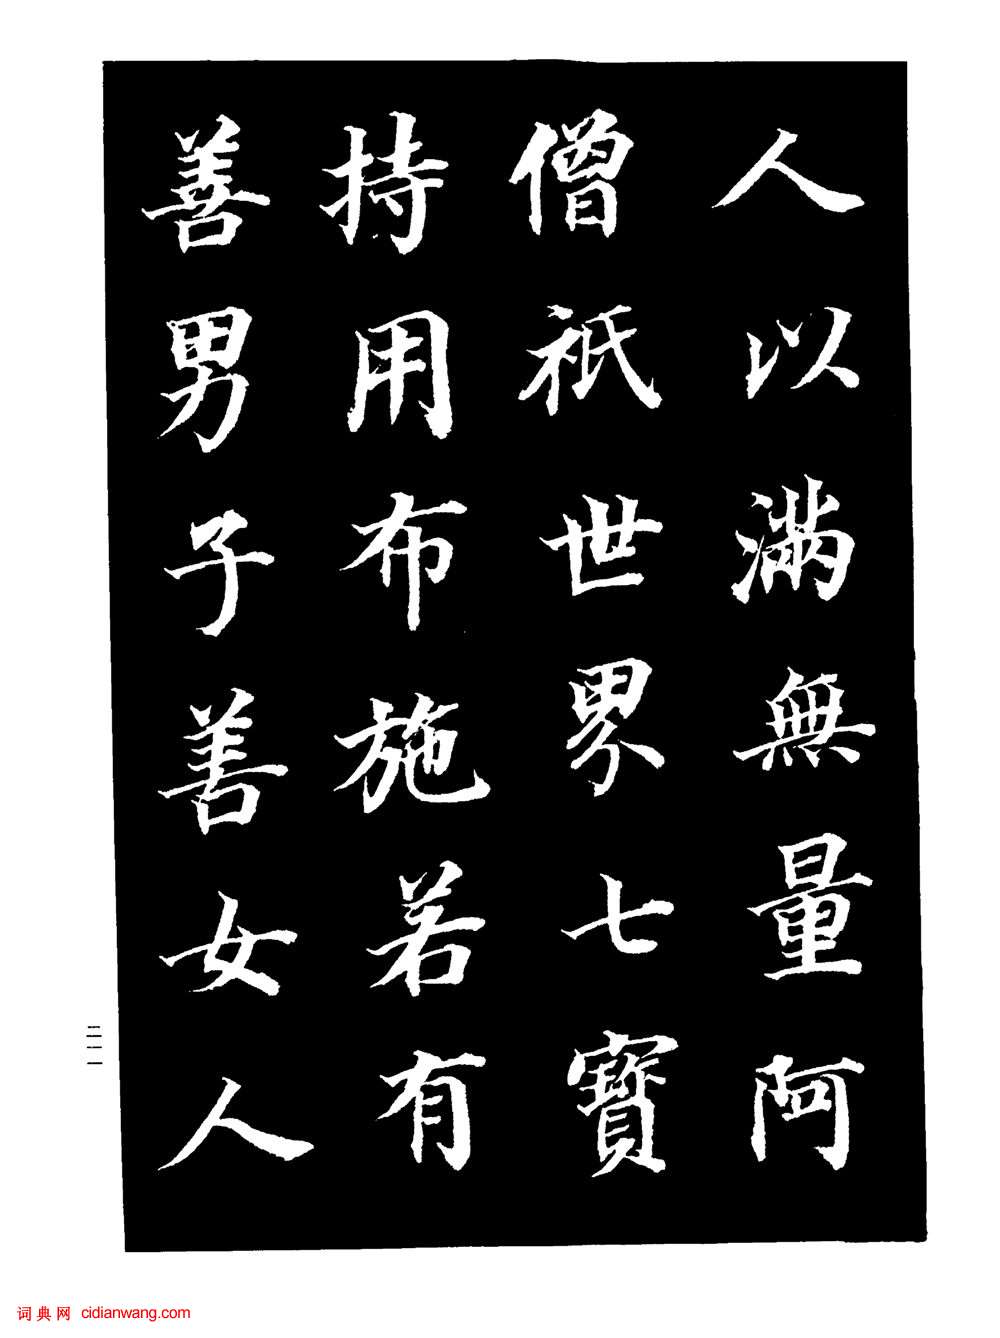 人以滿無量阿
僧祇世界七寶
持用布施若有
善男子善女人
二一一
词典网 cidianwang.com